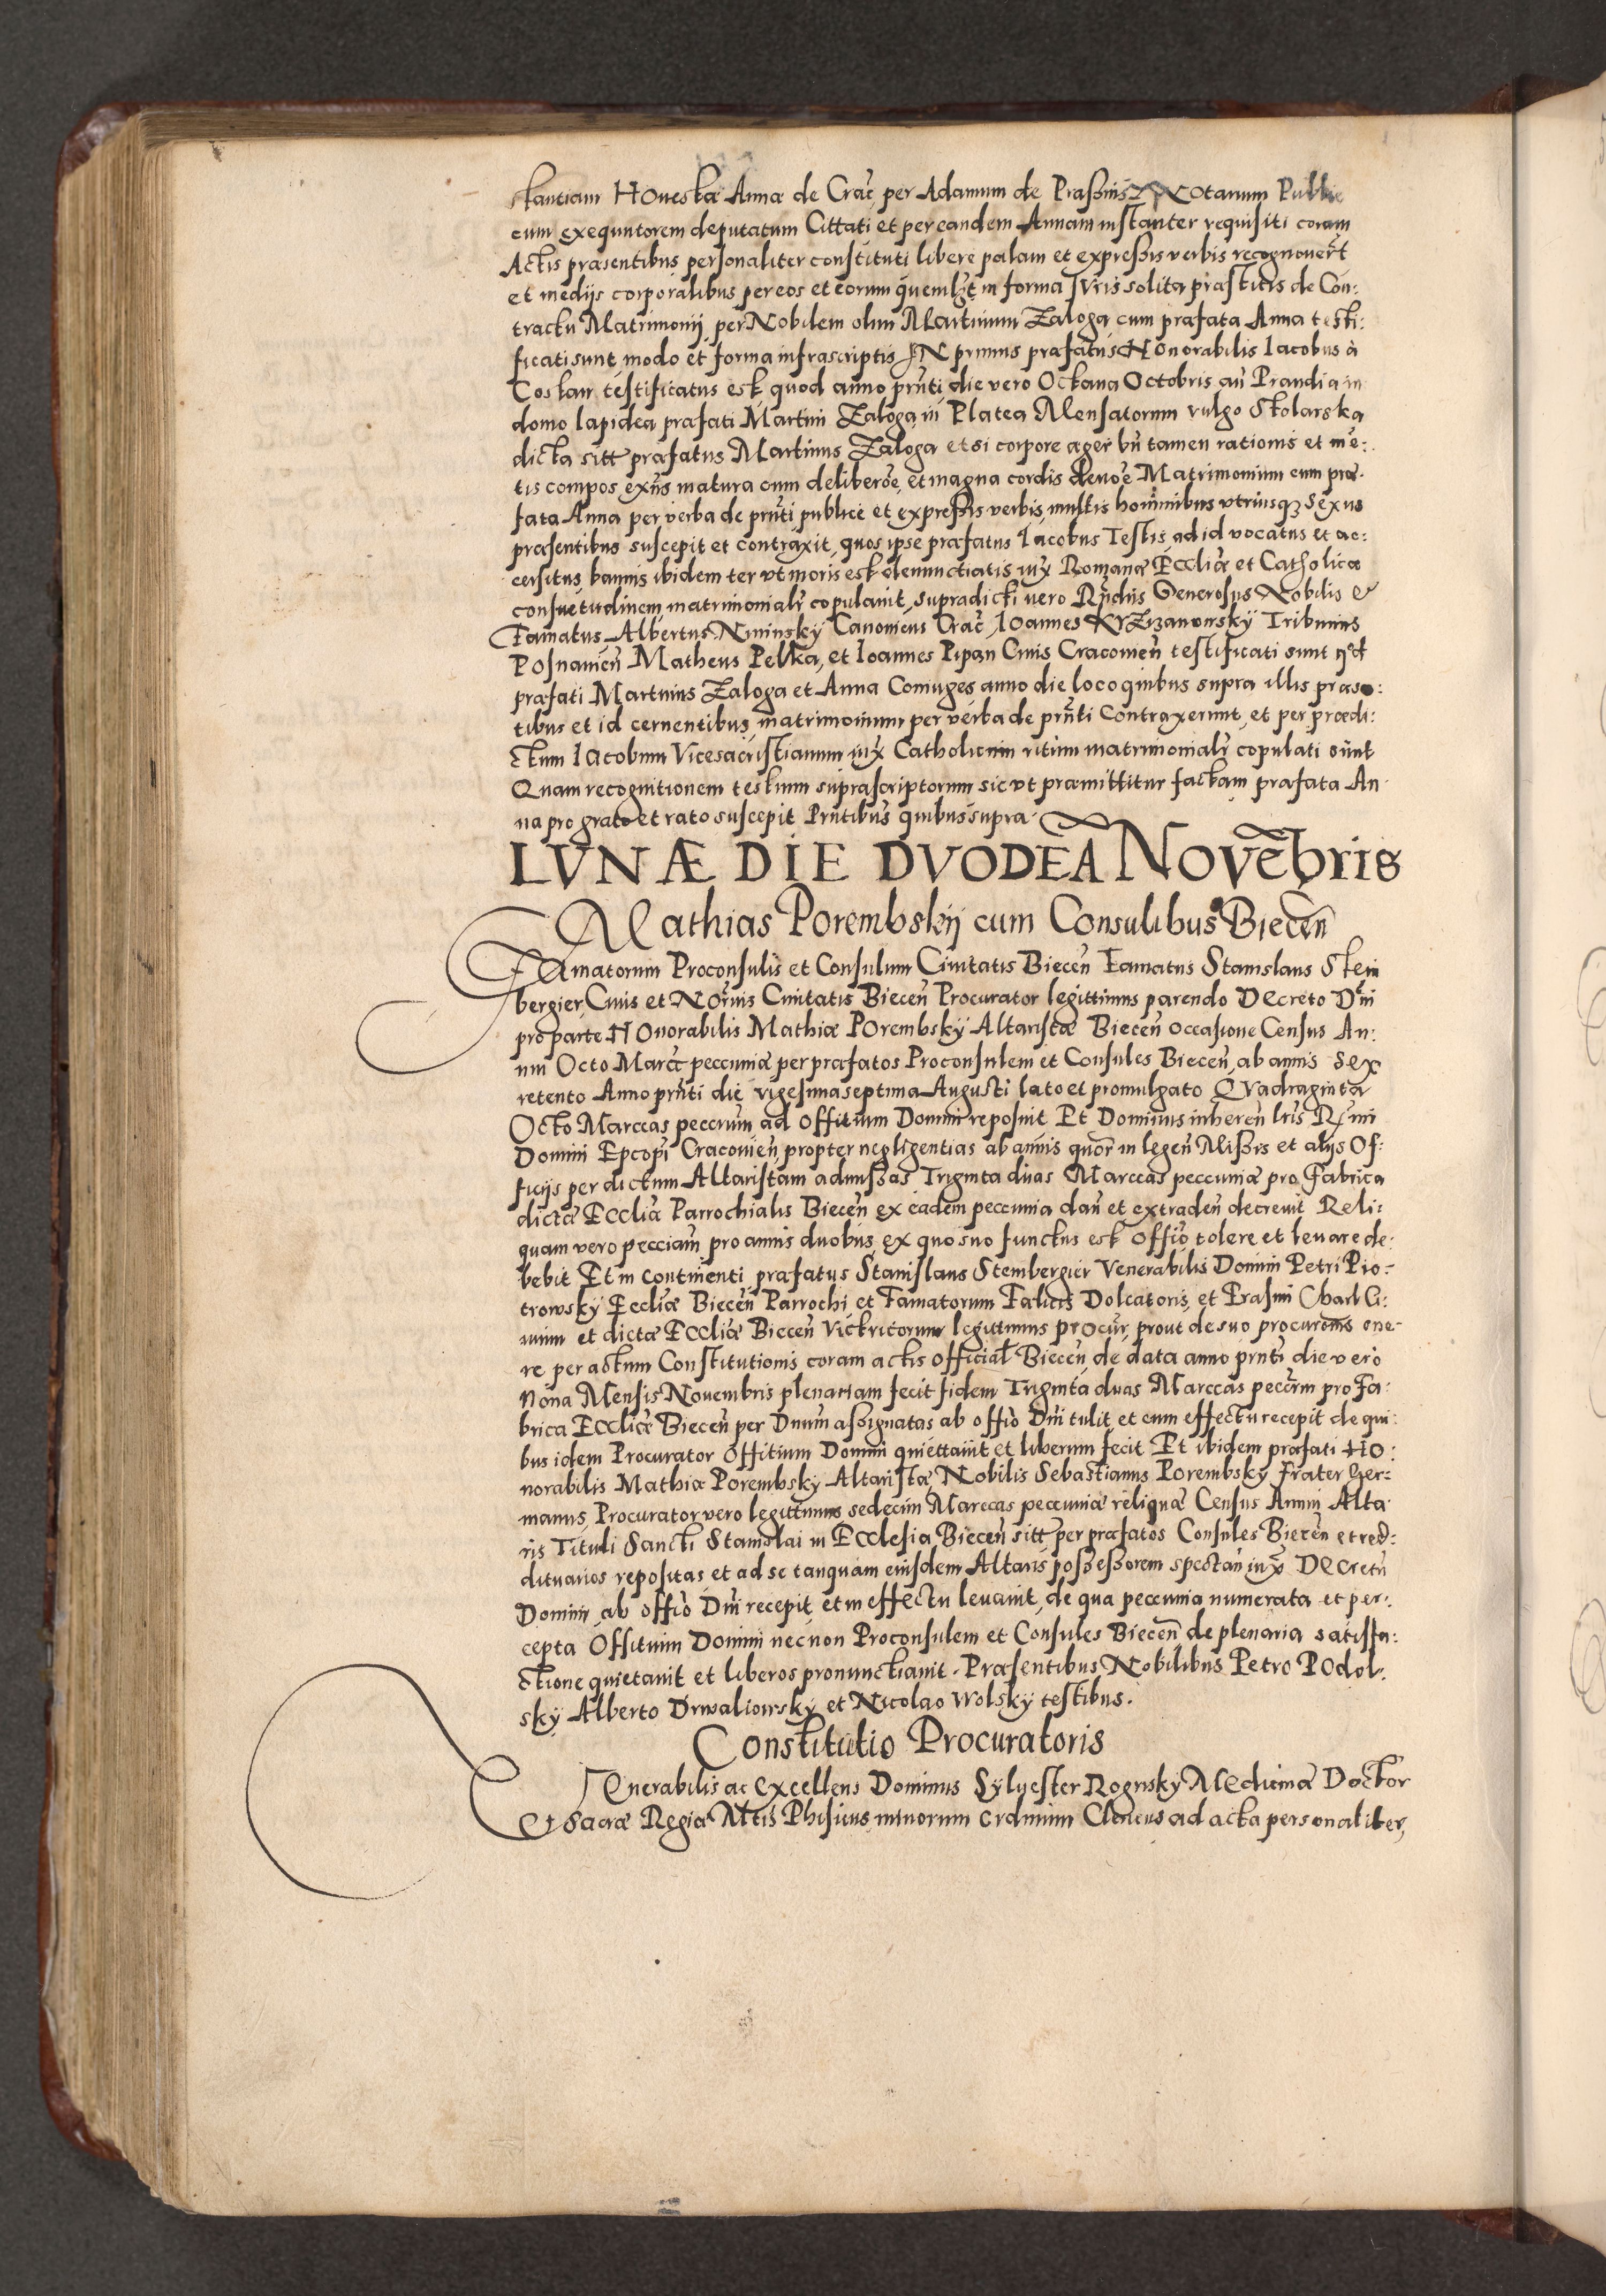 stantiam Honestæ Annæ de Crac̃ per Adamum de Prasznis Notarium Publi
cum exequutorem deputatum Cittati et per eandem Annam instanter requisiti coram
Actis præsentibus personaliter constituti libere palam et expressis verbis recognouer̃t
et medijs corporalibus per eos et eorum quemlʒt in forma Iuris solita præstitis de Con:
tractu Matrimonij per Nobilem olim Martinum Zaloga cum præfata Anna testi:
ficati sunt modo et forma infrascriptis IN primis præfatus Honorabilis Iacobus à
Costan testificatus est quod anno prñti die vero Octaua Octobris añ Prandia in
domo lapidea præfati Martini Zaloga in Platea Mensatorum vulgo Stolarska
dicta sitt præfatus Martinus Zaloga etsi corpore æger bñ tamen rationis et mẽ:
tis compos exñs matura cum deliberõe, et magna cordis deuõe Matrimonium cum præ:
fata Anna per verba de prñti publice et expressis verbis multis hominibus vtriusqʒ Sexus
præsentibus suscepit et contraxit, quos ipse præfatus Iacobus Testis ad id vocatus et ac:
cersitus bannis ibidem ter vt moris est denunctiatis iux̃ Romanæ Eccliæ et Catholicæ
consuetudinem matrimonialr̃ copulauit, supradicti vero Rñdus Generosus Nobilis &
Famatus Albertus Nininsky Canonicus Crac̃ Ioannes Krzizanowsky Tribunus
Posnanieñ Matheus Pelka, et Ioannes Pipan Ciuis Cracouieñ testificati sunt qd
præfati Martinus Zaloga et Anna Coniuges anno die loco quibus supra illis præsẽ:
tibus et id cernentibus matrimonium per verba de prñti Contraxerunt, et per prædi:
ctum Iacobum Vicesacristianum iux̃ Catholicum ritum matrimonialr̃ copulati sunt
Quam recognitionem testium suprascriptorum sic vt præmittitur factam præfata An
na pro grato et rato suscepit Prñtibus quibus supra
LVNÆ DIE DVODEĀ Novẽbris
Mathias Porembskij cum Consulibus Biecen̄
FAmatorum Proconsulis et Consulum Ciuitatis Bieceñ Famatus Stanislaus Stein
bergier, Ciuis et Noṝius Ciuitatis Bieceñ Procurator legittimus parendo Decreto Dñi
pro parte Honorabilis Mathiæ Porembsky Altaristæ Bieceñ occasione Census An:
nui Octo Marcc̃ peccuniæ per præfatos Proconsulem et Consules Bieceñ, ab annis sex
retento Anno prñti die vigesima septima Augusti lato et promulgato Quadraginta
Octo Marccas peccum̃ ad Offitium Domini reposuit Et Dominus inhereñ Lr̃is Rm̃i
Domini Epcopi Cracouieñ, propter negligentias ab annis quor̃ in legeñ Missis et alijs Of:
ficijs per dictum Altaristam admissas Triginta duas Marccas peccuniæ pro Fabrica
dictæ Eccliæ Parrochialis Bieceñ ex eadem peccunia dañ et extradeñ decreuit Reli:
quam vero pecciam̃ pro annis duobus, ex quo suo functus est offiõ tolere et leuare de:
bebit Et in continenti præfatus Stanislaus Stembergier Venerabilis Domini Petri Pio:
trowsky Eccliæ Bieceñ Parrochi, et Famatorum Falicis Dolcatoris, et Erasmi Charl Ci:
uium et dictæ Eccliæ Bieceñ Victricorum legittimus procur̃, prout de suo procurõnis one:
re per actum Constitutionis coram actis official Bieceñ, de data anno prñti die vero
Nona Mensis Nouembris plenariam fecit fidem Triginta duas Marccas peccum̃ pro Fa:
brica Eccliæ Bieceñ per Dnum assignatas ab offiõ Dñi tulit et cum effectu recepit de qui:
bus idem Procurator Offitium Domini quiettauit et liberum fecit Et ibidem præfati Ho:
norabilis Mathiæ Porembsky Altaristæ, Nobilis Sebastianus Porembsky frater Ger:
manus, Procurator vero legittimus sedecim Marccas peccuniæ reliquæ Census Annui Alta
ris Tituli Sancti Stanislai in Ecclesia Bieceñ sitt per præfatos Consules Bieceñ et red:
dituarios repositas et ad se tanquam eiusdem Altaris possessorem spectañ iux̃ Decretũ
Domini, ab offiõ Dñi recepit, et in effectu leuauit, de qua peccunia numerata et per:
cepta Offitium Domini necnon Proconsulem et Consules Bieceñ de plenaria satisfa:
ctione quietauit et liberos pronunctiauit. Præsentibus Nobilibus Petro Podol:
sky Alberto Drwaliowsky et Nicolao Wolsky testibus.
Constitutio Procuratoris
Venerabilis ac Excellens Dominus Syluester Rogusky Medicinæ Doctor
Et Sacræ Regiæ Mtis Phisicus minorum ordinum Clericus ad acta personaliter,